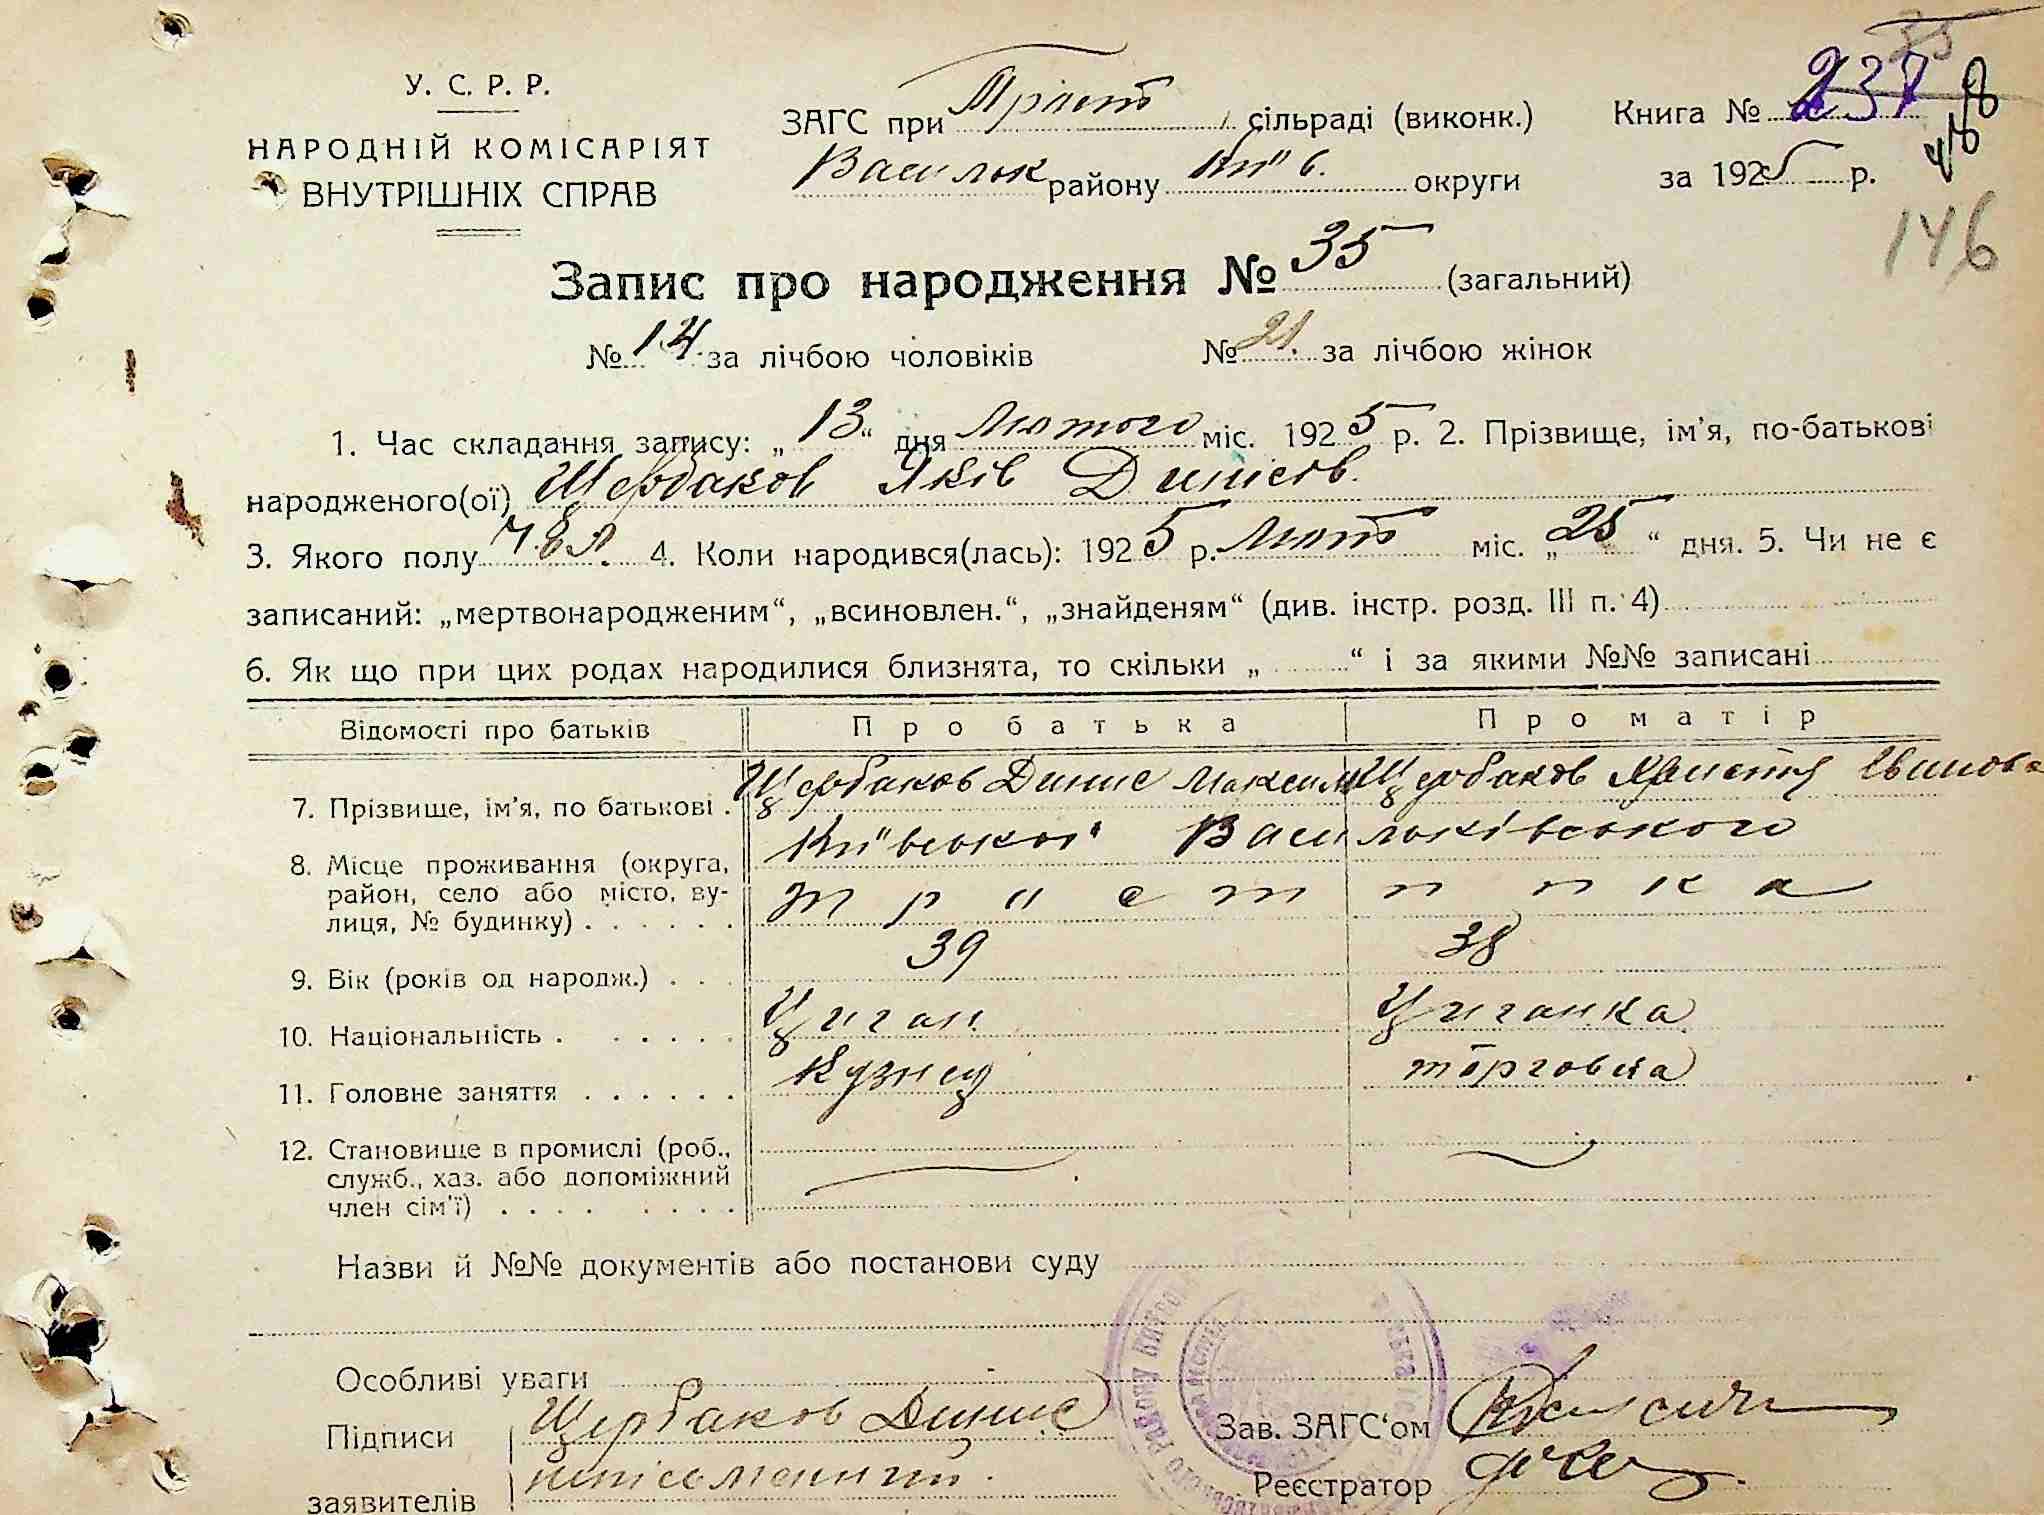 У. С. Р. Р.
НАРОДНІЙ КОМІСАРІЯТ
ВНУТРІШНІХ СПРАВ
ЗАГС при Тріст сільраді (виконк.)
Васильк району Київ. округи
Книга № 237
за 1925 р.
146
Запис про народження № 35 (загальний)
№ 14 за лічбою чоловіків № 21. за лічбою жінок
1. Час складання запису: „13“ дня Лютого міс. 1925 р. 2. Прізвище, ім'я, по-батькові
народженого(ої) Щербаков Яків Динісів.
3. Якого полу чол. 4. Коли народився(лась): 1925 р. Лют міс. „25“ дня. 5. Чи не є
записаний: „мертвонародженим“, „всиновлен.“, „знайденям“ (див. інстр. розд. III п. 4)
6. Як що при цих родах народилися близнята, то скільки „ “ і за якими №№ записані
Відомості про батьків Про батька Про матір
7. Прізвище, ім'я, по батькові . Щербаков Динис Максим Щербаков Христя Іванова
8. Місце проживання (округа, Київської Васильківського
район, село або місто, ву-
лиця, № будинку) . . . . . .
9. Вік (років од народж.) . . . 39 38
10. Національність . . . . . . Циган Циганка
11. Головне заняття . . . . . . Кузнец торговля
12. Становище в промислі (роб.,
служб., хаз. або допоміжний
член сім'ї) . . . . . . . .
Назви й №№ документів або постанови суду
Особливі уваги
Підписи Щербаков Динис Зав. ЗАГС'ом
заявителів Реєстратор